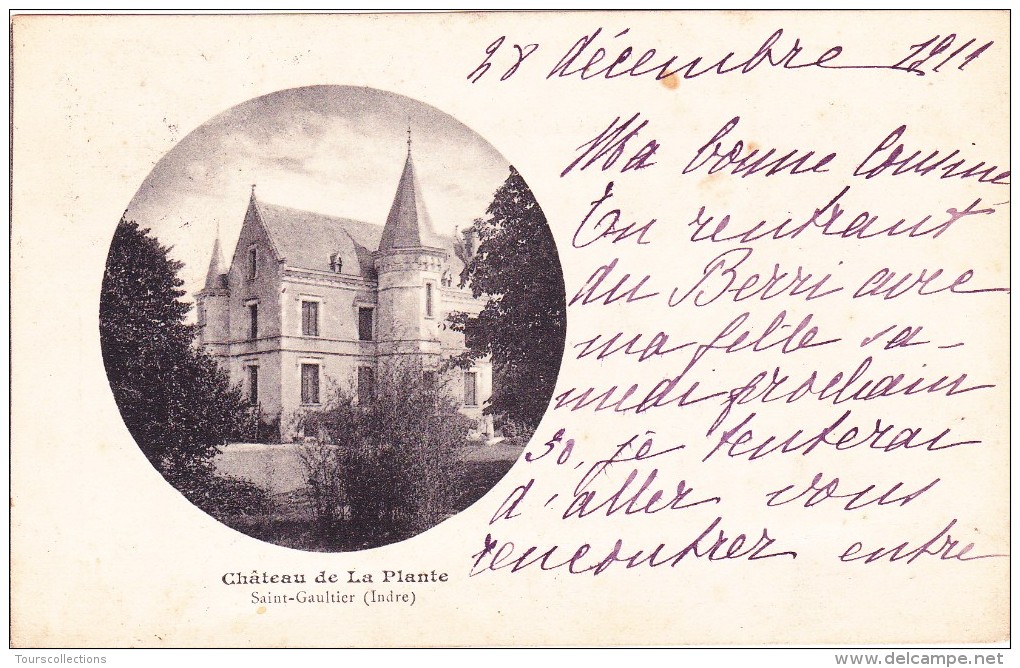 28 décembre 1911
Ma bonne Cousine
En rentrant
du Berri avec
ma fille sa-
medi prochain
30, je tenterai
d'aller vous
rencontrer entre
Château de La Plante
Saint-Gaultier (Indre)
Tourscollections
http://www.delcampe.net